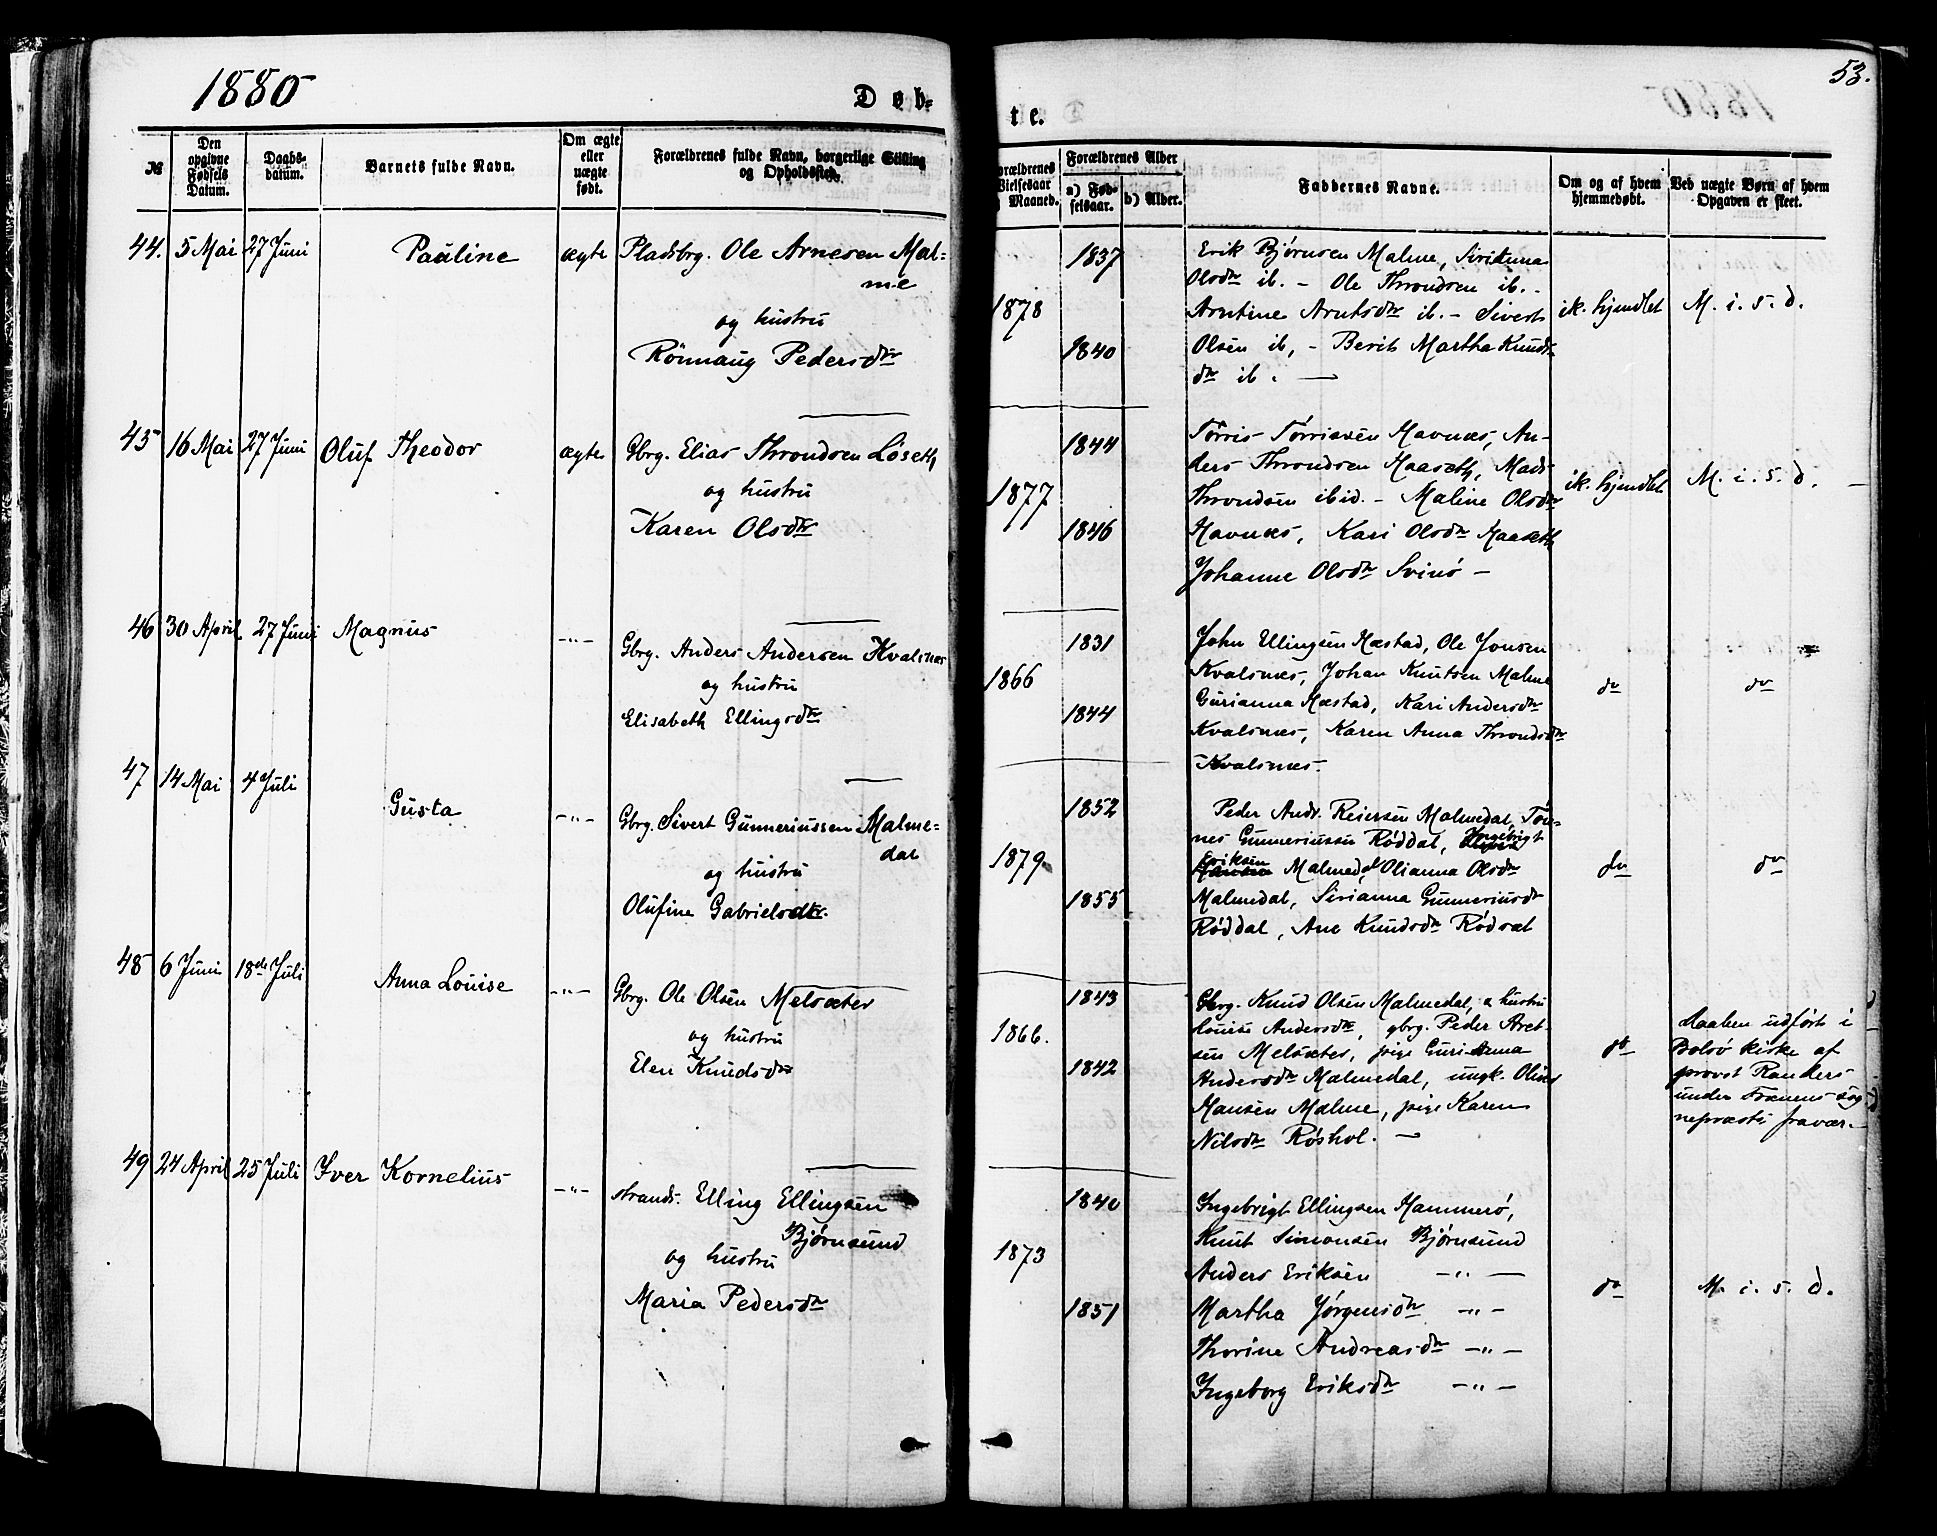 1880
Døb-
te.
53.
№
Den opgivne Fødsels Datum.
Daabs-datum.
Barnets fulde Navn.
Om ægte eller uægte født.
Forældrenes fulde Navn, borgerlige Stilling og Opholdssted.
Forældrenes Vielsesaar Maaned.
Forældrenes Alder
a) Fød-selsaar.
b) Alder.
Faddernes Navne.
Om og af hvem hjemmedøbt.
Ved uægte Børn af hvem Opgaven er skeet.
44. 5 Mai 27 Juni Pauline ægte Pladsbrg. Ole Arnesen Mal-
me
og hustru
Rönnaug Pedersdtr
1878
1837
1840
Erik Bjørnsen Malme, Sirianna
Olsdtr ib. - Ole Throndsen ib. -
Arntine Arntsdtr ib. - Sivert
Olsen ib, - Berit Martha Knuds-
dtr ib. -
ik. hjmdbt M. i. s. d.
45 16 Mai 27 Juni Oluf Theodor ægte Gbrg. Elias Throndsen Löseth
og hustru
Karen Olsdtr
1877
1844
1846
Törris Törrissen Havnæs, An-
ders Throndsen Haaseth, Mads
Throndsen ibid. - Maline Olsdtr
Havnæs, Kari Olsdtr Haaseth
Johanne Olsdtr Svinö -
ik. hjmdbt M. i. s. d. -
46 30 April 27 Juni Magnus -"- Gbrg. Anders Andersen Kvalsnæs
og hustru
Elisabeth Ellingsdtr
1866
1831
1844
John Ellingsen Hæstad, Ole Jonsen
Kvalsnæs, Johan Knutsen Malme
Gurianna Hæstad, Kari Andersdtr
Kvalsnæs, Karen Anna Throndsdtr
Kvalsnæs.
do do
47 14 Mai 4 Juli Gusta -"- Gbrg. Sivert Gunneriussen Malme-
dal
og hustru
Olufine Gabrielsdtr.
1879
1852
1855
Peder Andr. Reiersen Malmedal, Tön-
nes Gunneriussen Røddal, Ingebrigt
Eriksen Malmedal Olianna Olsdtr
Malmedal, Sirianna Gunneriusdtr
Røddal, Ane Knudsdtr Rødsæt
do do
48 6 Juni 18de Juli Anna Louise -"- Gbrg. Ole Olsen Melsæter
og hustru
Elen Knudsdtr
1866.
1843
1842
Gbrg. Knud Olsen Malmedal, & hustru
Louise Andersdtr, gbrg. Peder Aret-
sen Melsæter, pige Gurianna
Andersdtr Malmedal, ungk. Oliver
Hansen Malme, pige Karen
Nilsdtr Røshol. -
do
Daaben udført i
Bolsö kirke af
provst Randers
under Frænens sog-
nepræsts fravær. -
49 24 April 25 Juli Iver Kornelius -"- strands. Elling Ellingsen
Bjørnsund
og hustru
Maria Pedersdtr
1873
1840
1851
Ingebrigt Ellingsen Hammerö,
Knut Simonsen Bjørnsund
Anders Eriksen -"-
Martha Jørgensdtr -"-
Thorine Andreasdtr -"-
Ingeborg Eriksdtr -"-
do M. i. s. d.